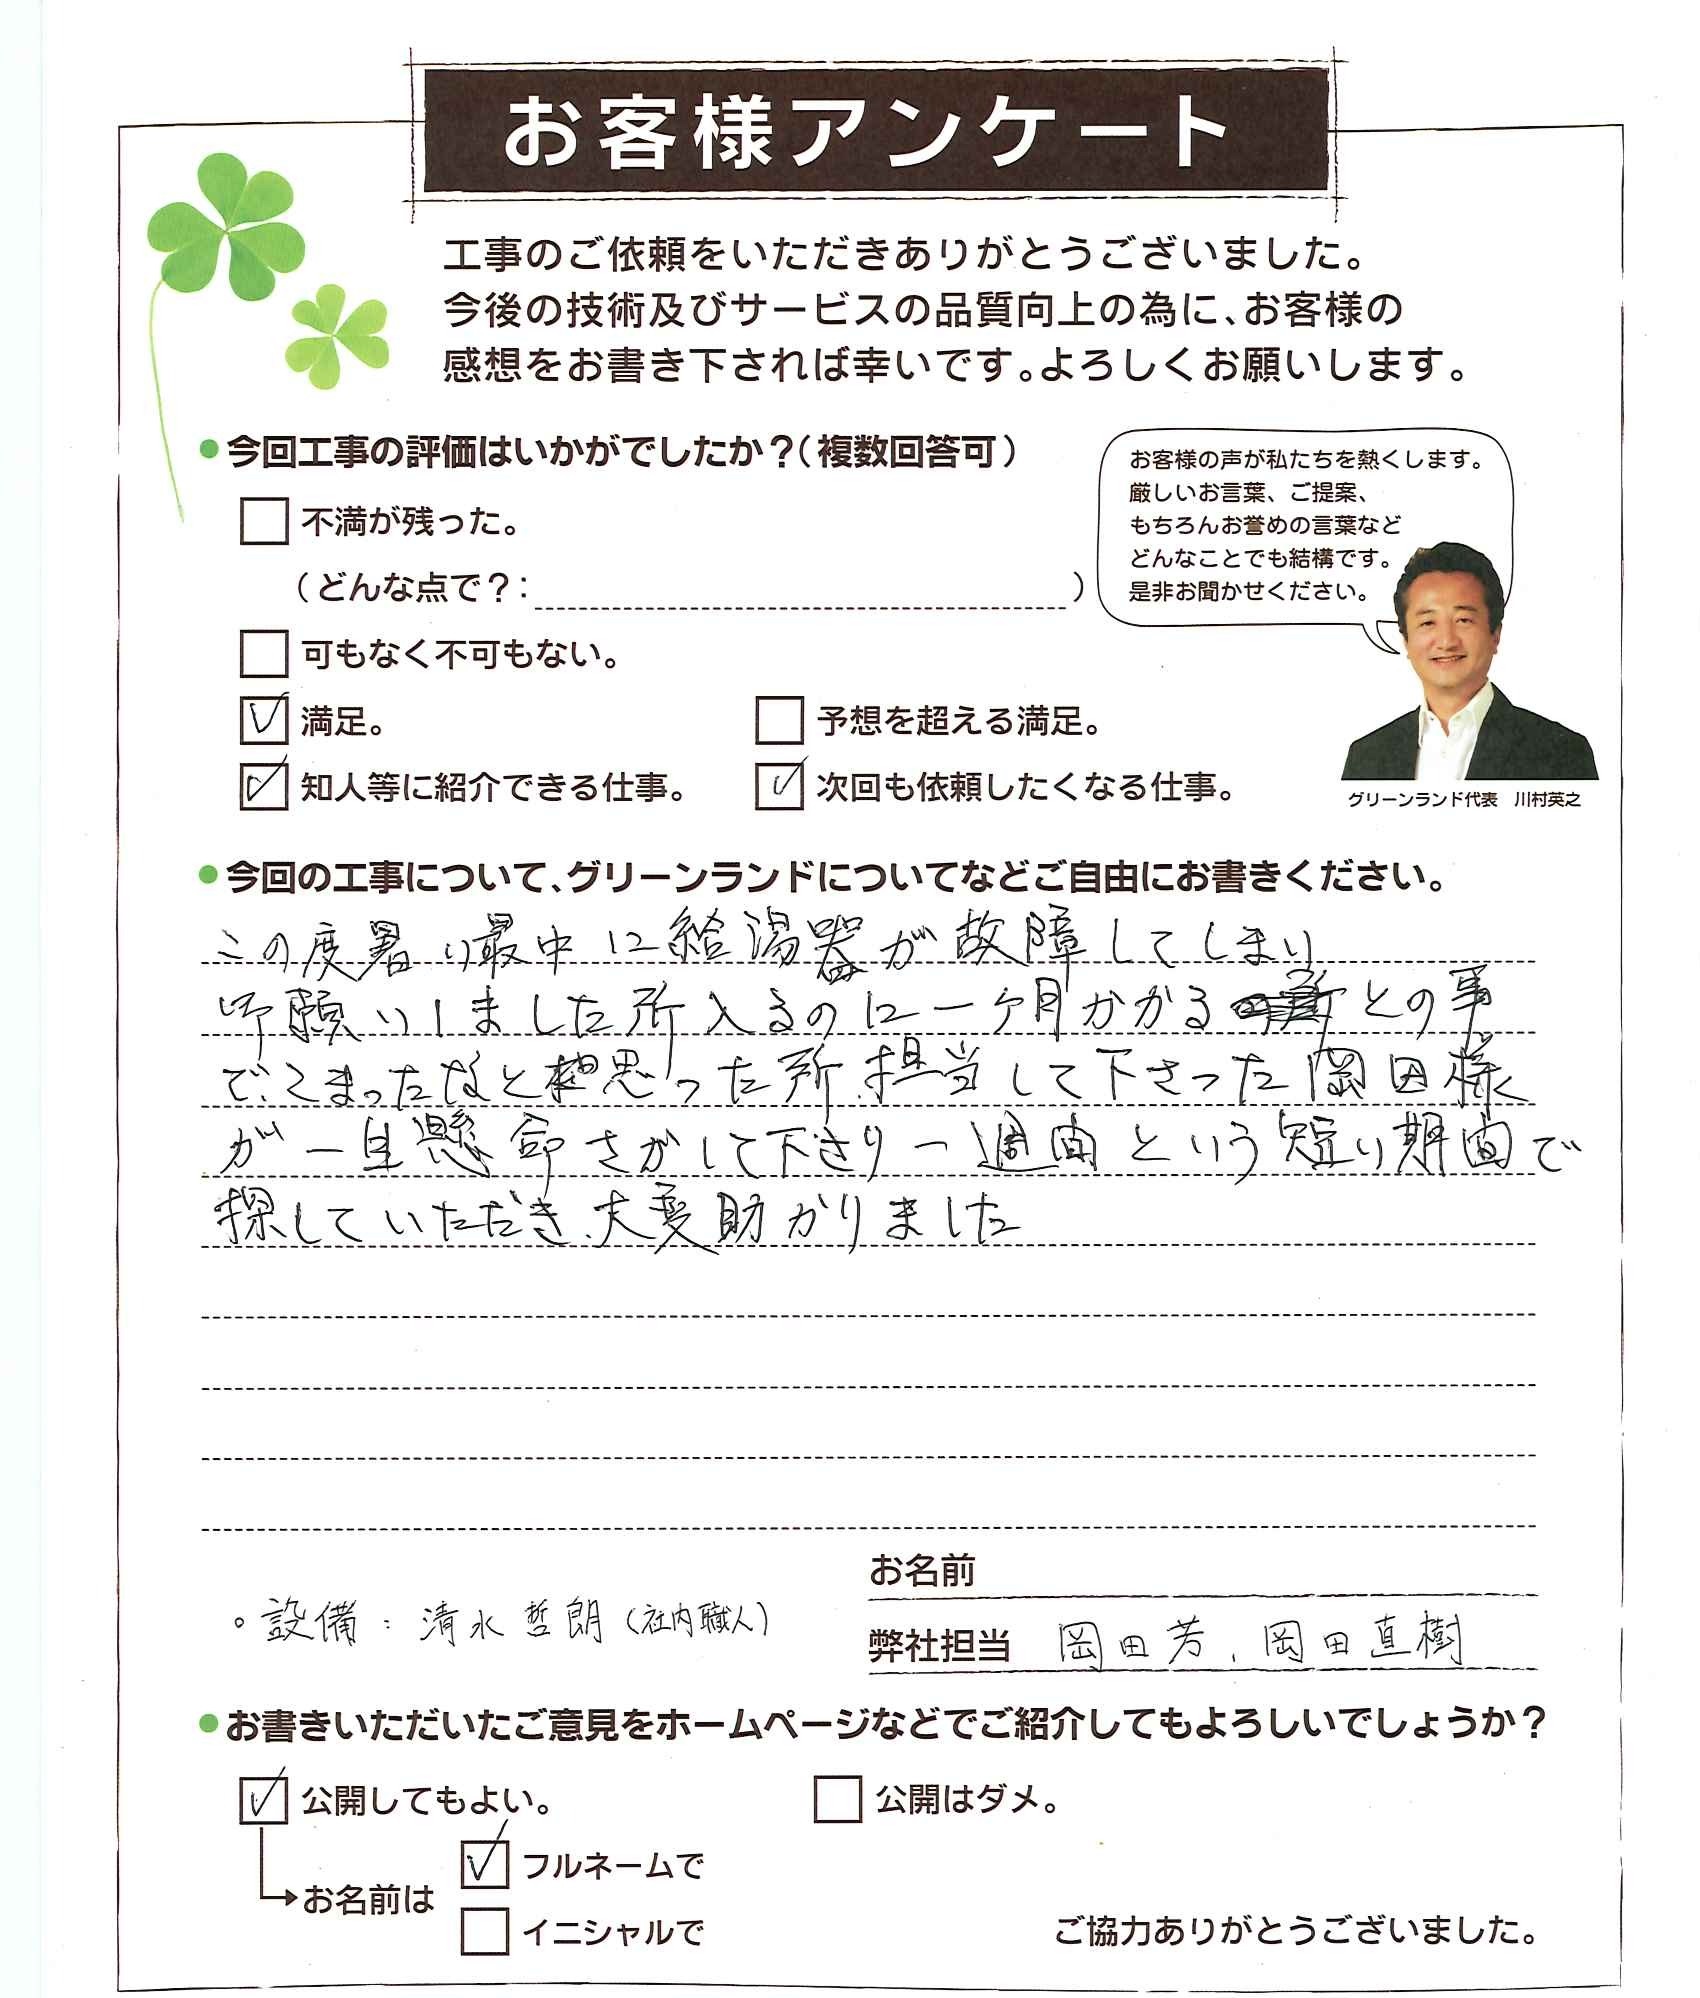 お客様アンケート
工事のご依頼をいただきありがとうございました。
今後の技術及びサービスの品質向上の為に、お客様の
感想をお書き下されば幸いです。よろしくお願いします。
●今回工事の評価はいかがでしたか？（複数回答可）
不満が残った。
（どんな点で？：　）
可もなく不可もない。
満足。
予想を超える満足。
知人等に紹介できる仕事。
次回も依頼したくなる仕事。
お客様の声が私たちを熱くします。
厳しいお言葉、ご提案、
もちろんお誉めの言葉など
どんなことでも結構です。
是非お聞かせください。
グリーンランド代表　川村英之
●今回の工事について、グリーンランドについてなどご自由にお書きください。
この度暑い最中に給湯器が故障してしまい
御願いしました所入るのに一ヶ月かかるとの事
で、こまったなと思った所、担当して下さった岡田様
が一生懸命さがして下さり一週間という短い期間で
探していただき、大変助かりました
お名前
。設備：清水哲朗（社内職人）
弊社担当　岡田芳、岡田直樹
●お書きいただいたご意見をホームページなどでご紹介してもよろしいでしょうか？
公開してもよい。
公開はダメ。
お名前は
フルネームで
イニシャルで
ご協力ありがとうございました。